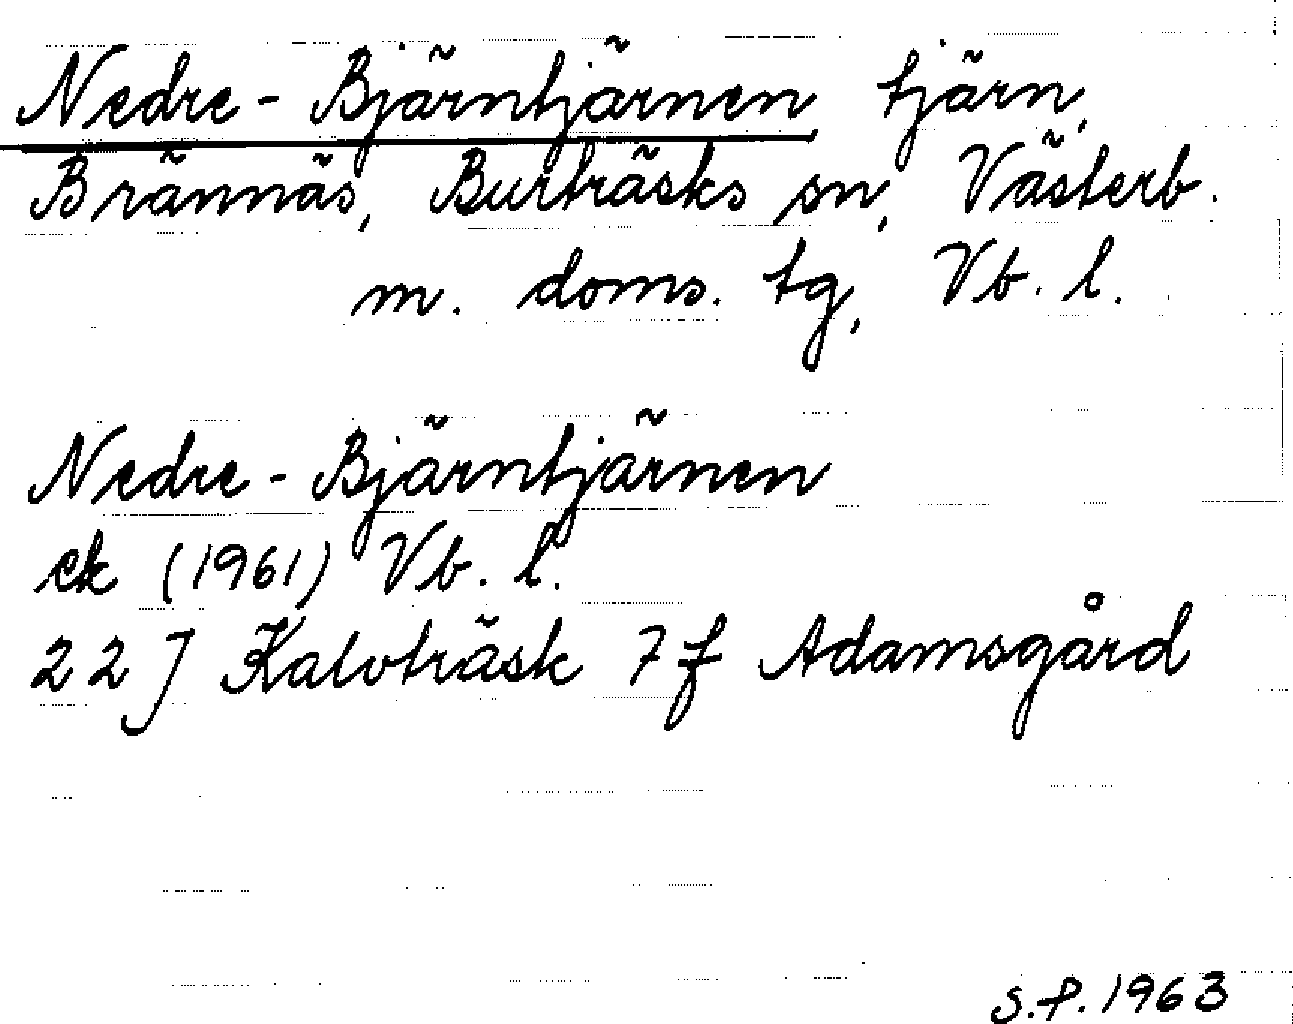 Nedre-Bjärntjärnen, tjärn,
Brännäs, Burträsks sn, Västerb.
m. doms. tg, Vb. l.
Nedre-Bjärntjärnen
ek (1961) Vb. l.
22 J Kalvträsk 7 f Adamsgård
S.P. 1963